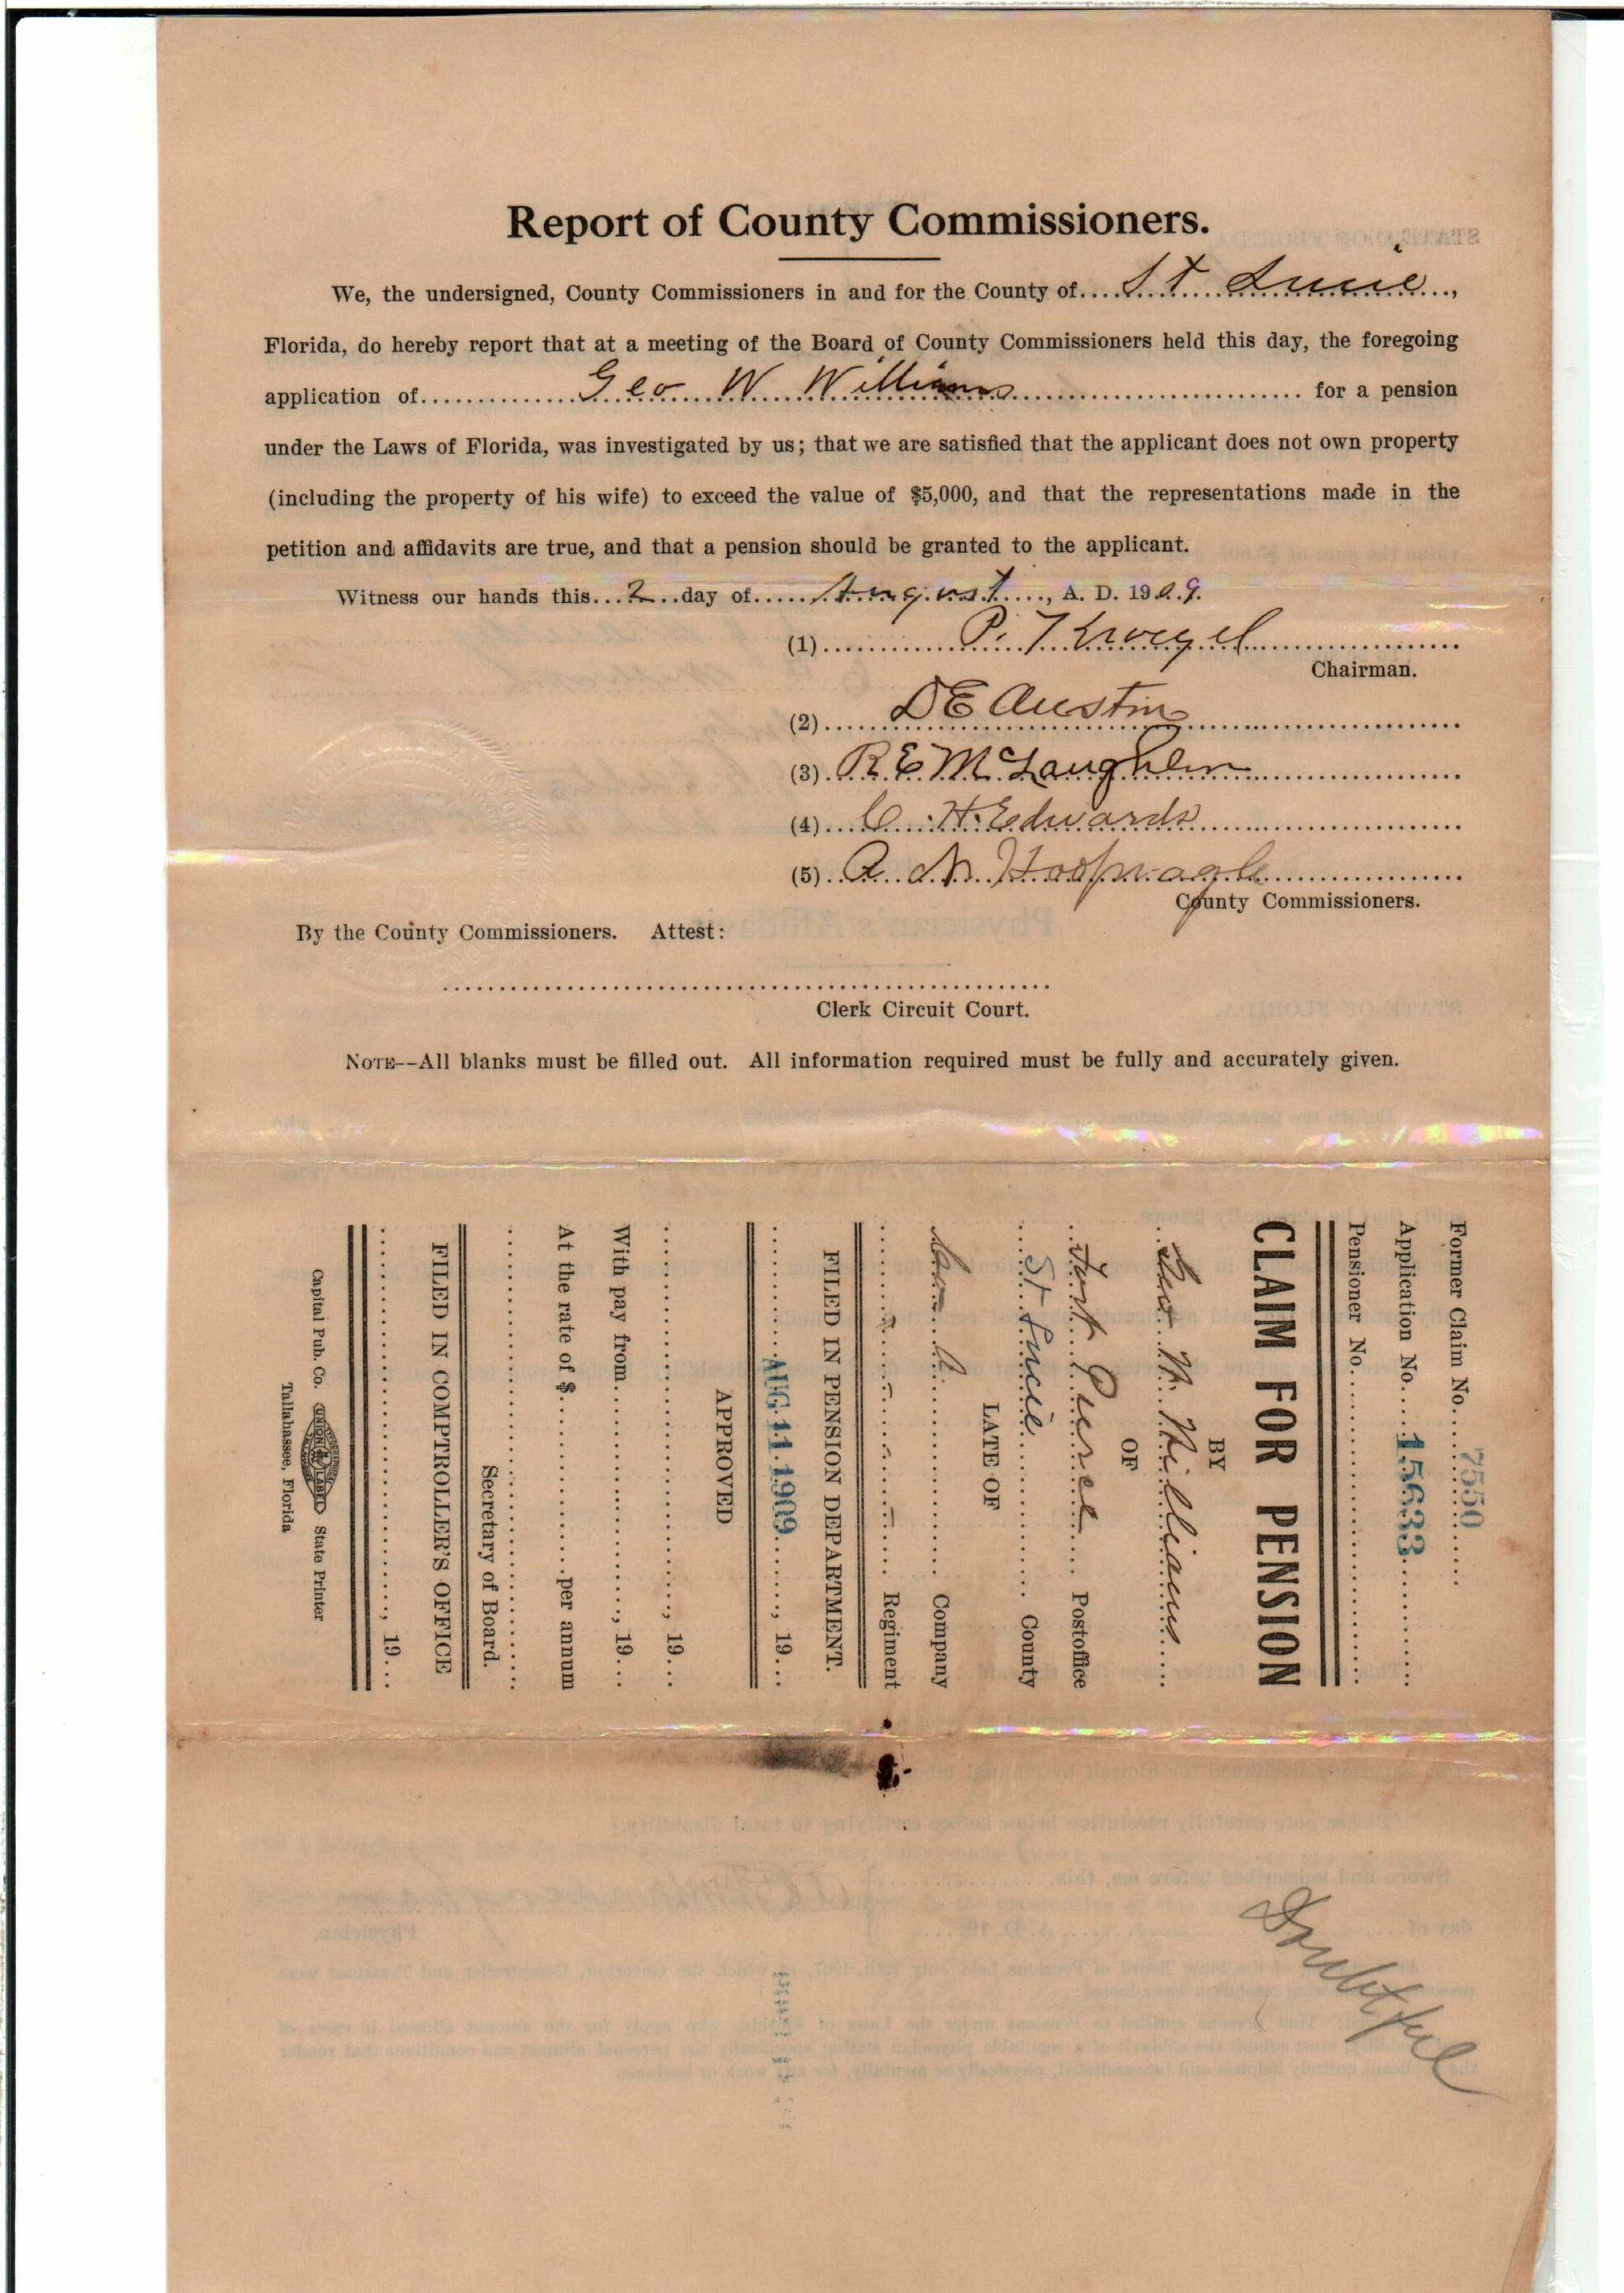 Report of County Commissioners.
We, the undersigned, County Commissioners in and for the County of....St. Lucie....,
Florida, do hereby report that at a meeting of the Board of County Commissioners held this day, the foregoing
application of.............Geo W Williams............................ for a pension
under the Laws of Florida, was investigated by us; that we are satisfied that the applicant does not own property
(including the property of his wife) to exceed the value of $5,000, and that the representations made in the
petition and affidavits are true, and that a pension should be granted to the applicant.
Witness our hands this...2...day of.....August...., A. D. 1909.
(1)............P. Kroegel....................
Chairman.
(2).....DE Austin........................
(3).RE McLaughlin....................
(4)...C. H. Edwards........................
(5)..A. M. Hoofnagle...................
County Commissioners.
By the County Commissioners. Attest:
Clerk Circuit Court.
NOTE--All blanks must be filled out. All information required must be fully and accurately given.
Former Claim No....7550.........
Application No....15633............
Pensioner No............................
CLAIM FOR PENSION
BY
..Geo W. Williams....
OF
..Fort Pierce.... Postoffice
...St Lucie............. County
LATE OF
Com A................ Company
........................ Regiment
FILED IN PENSION DEPARTMENT.
............AUG 11 1909......., 19...
APPROVED
......................................, 19...
With pay from........................, 19...
At the rate of $................per annum
Secretary of Board.
FILED IN COMPTROLLER'S OFFICE
......................................, 19...
Capital Pub. Co. UNION LABEL State Printer
Tallahassee, Florida
Doubtful